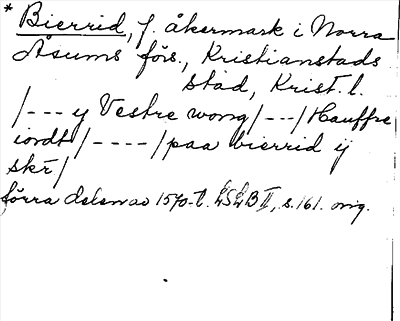 * Bierrid, f. åkermark i Norra
Åsums förs., Kristianstads
stad, Krist. l.
/--- y Vestre wong/---/Hauffre
iordt/----/paa bierrid ij
skr/
förra delen av 1570-t. LSLB II, s. 161. orig.